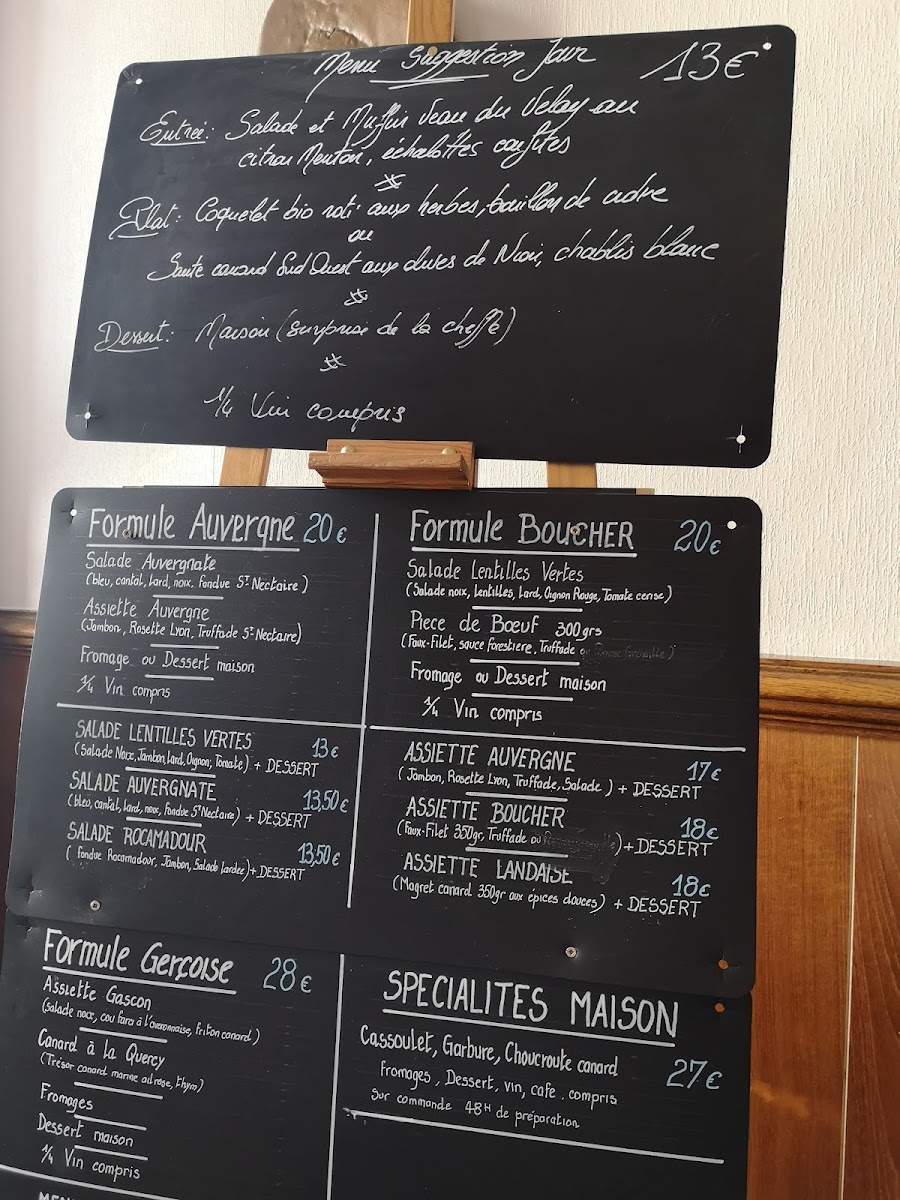 Menu Suggestion Jour 13€
Entrée: Salade et Muffin Veau du Velay au
citron Menton, échalottes confites
Plat: Coquelet bio roti aux herbes, bouillon de cidre
ou
Sauté canard Sud Ouest aux olives de Nion, chablis blanc
Dessert: Maison (surprise de la cheffe)
1/4 Vin compris
Formule Auvergne 20€
Salade Auvergnate
(bleu, cantal, lard, noix, fondue St Nectaire)
Assiette Auvergne
(Jambon, Rosette Lyon, Truffade St Nectaire)
Fromage ou Dessert maison
1/4 Vin compris
Formule BOUCHER 20€
Salade Lentilles Vertes
(Salade noix, Lentilles, Lard, Oignon Rouge, Tomate cerise)
Piece de Bœuf 300grs
(Faux-Filet, sauce forestiere, Truffade
Fromage ou Dessert maison
1/4 Vin compris
SALADE LENTILLES VERTES 13€
(Salade Noix, Jambon, Lard, Oignon, Tomate) + DESSERT
SALADE AUVERGNATE 13,50€
(bleu, cantal, lard, noix, fondue St Nectaire) + DESSERT
SALADE ROCAMADOUR 13,50€
(fondue Rocamadour, Jambon, Salade lardée) + DESSERT
ASSIETTE AUVERGNE 17€
(Jambon, Rosette Lyon, Truffade, Salade) + DESSERT
ASSIETTE BOUCHER 18€
(Faux-Filet 350gr, Truffade ou ) + DESSERT
ASSIETTE LANDAISE 18€
(Magret canard 350gr aux épices douces) + DESSERT
Formule Gerçoise 28€
Assiette Gascon
(Salade noix, cou farci à l'aveyronnaise, Friton canard)
Canard à la Quercy
(Trésor canard mariné ail rose, thym)
Fromages
Dessert maison
1/4 Vin compris
SPECIALITES MAISON
Cassoulet, Garbure, Choucroute canard 27€
Fromages, Dessert, vin, cafe. compris
Sur commande 48H de préparation